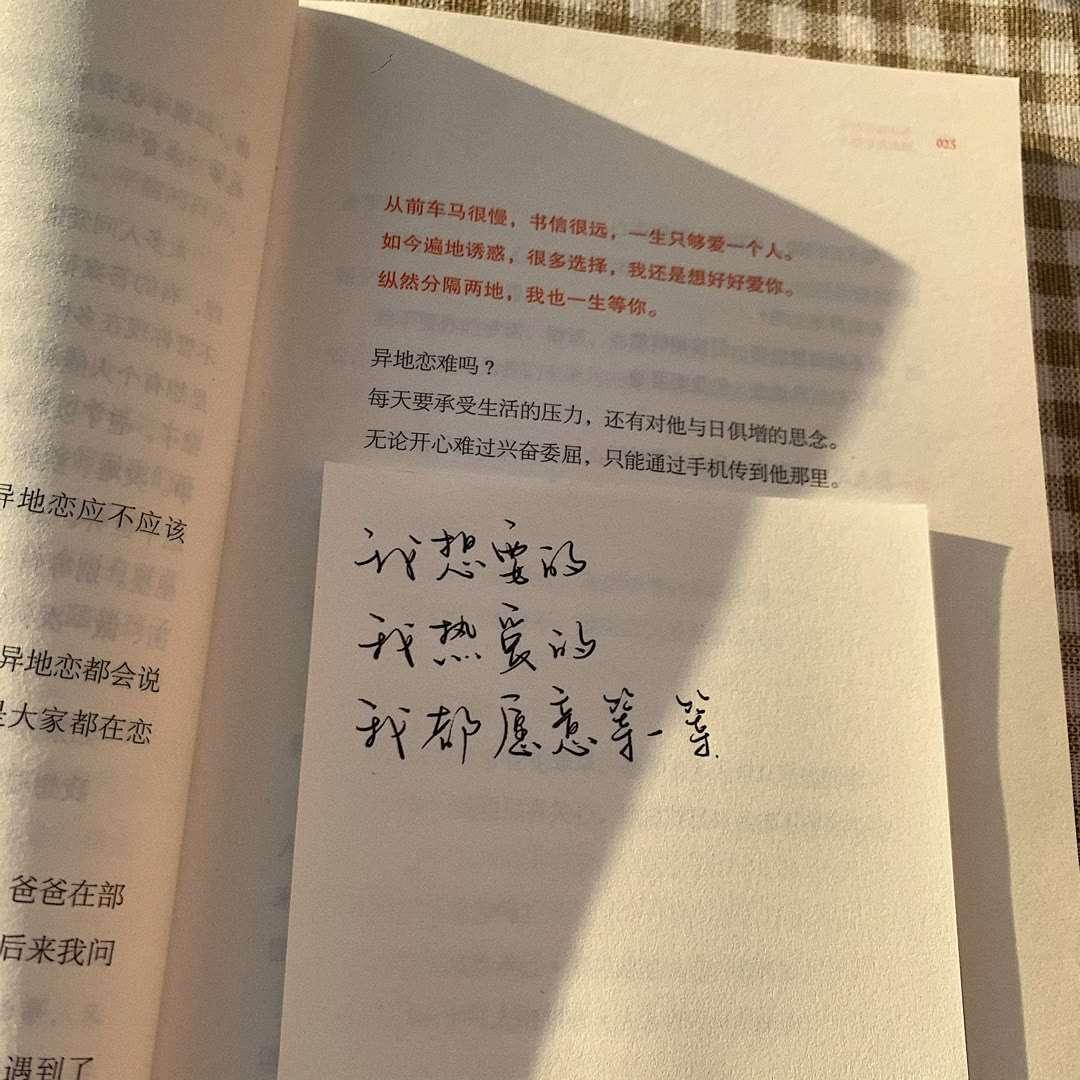 025
从前车马很慢，书信很远，一生只够爱一个人。
如今遍地诱惑，很多选择，我还是想好好爱你。
纵然分隔两地，我也一生等你。
异地恋难吗？
每天要承受生活的压力，还有对他与日俱增的思念。
无论开心难过兴奋委屈，只能通过手机传到他那里。
我想要的
我热爱的
我都愿意等一等
异地恋应不应该
异地恋都会说
是大家都在恋
爸爸在部
后来我问
遇到了